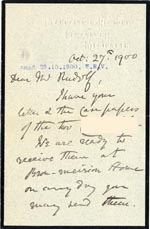 Oct. 27th 1900
ansd 29.10.1900.
Dear Mr Rudolf,
I have your
letter & the case papers
of the two
We are ready to
receive them at
Home
on any day you
may send them.